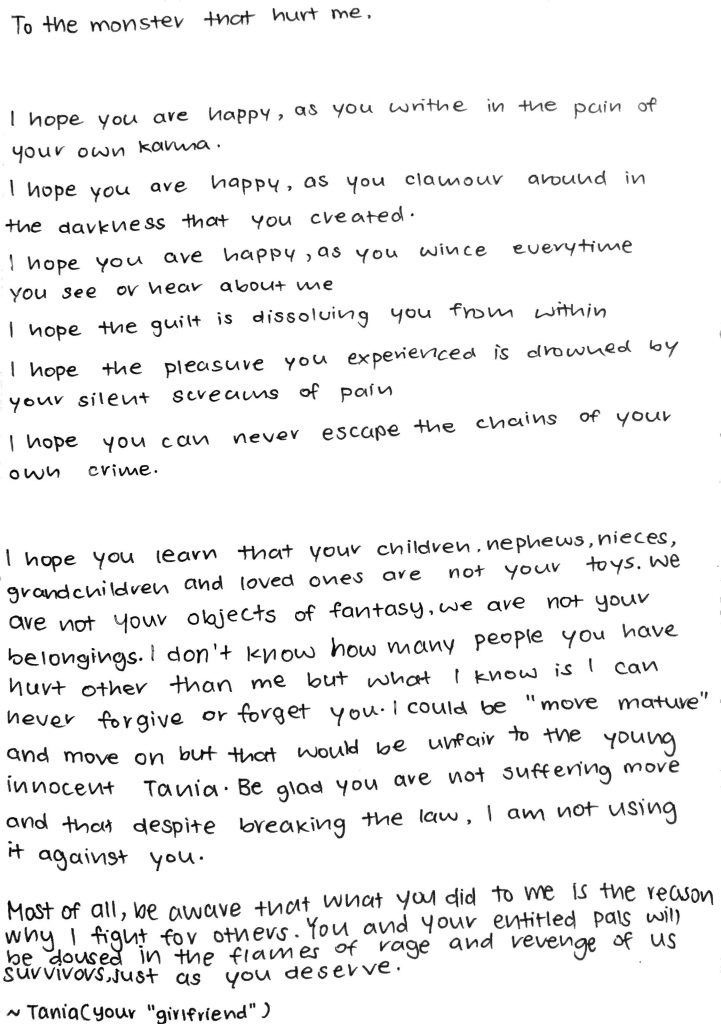 To the monster that hurt me.
I hope you are happy, as you writhe in the pain of
your own karma.
I hope you are happy, as you clamour around in
the darkness that you created.
I hope you are happy, as you wince everytime
you see or hear about me
I hope the guilt is dissolving you from within
I hope the pleasure you experienced is drowned by
your silent screams of pain
I hope you can never escape the chains of your
own crime.
I hope you learn that your children, nephews, nieces,
grandchildren and loved ones are not your toys. We
are not your objects of fantasy, we are not your
belongings. I don't know how many people you have
hurt other than me but what I know is I can
never forgive or forget you. I could be "more mature"
and move on but that would be unfair to the young
innocent Tania. Be glad you are not suffering more
and that despite breaking the law, I am not using
it against you.
Most of all, be aware that what you did to me is the reason
why I fight for others. You and your entitled pals will
be doused in the flames of rage and revenge of us
survivors, just as you deserve.
~ Tania (your "girlfriend")